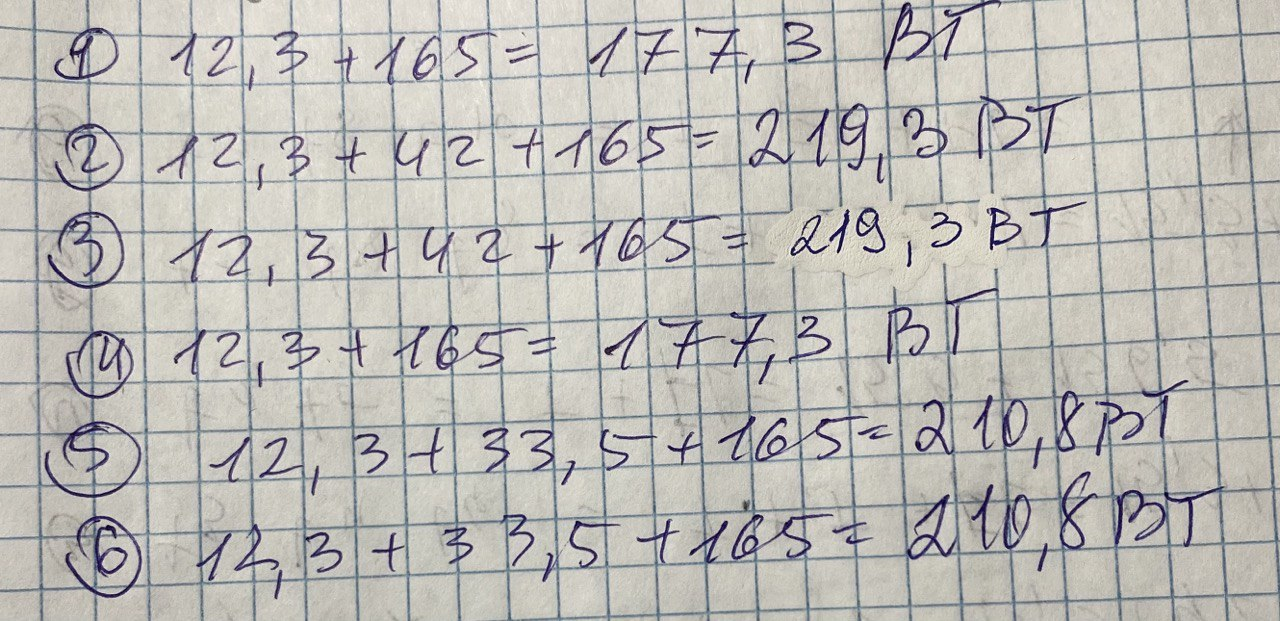 ① 12,3 + 165 = 177,3 ВТ
② 12,3 + 42 + 165 = 219,3 ВТ
③ 12,3 + 42 + 165 = 219,3 ВТ
④ 12,3 + 165 = 177,3 ВТ
⑤ 12,3 + 33,5 + 165 = 210,8 ВТ
⑥ 12,3 + 33,5 + 165 = 210,8 ВТ